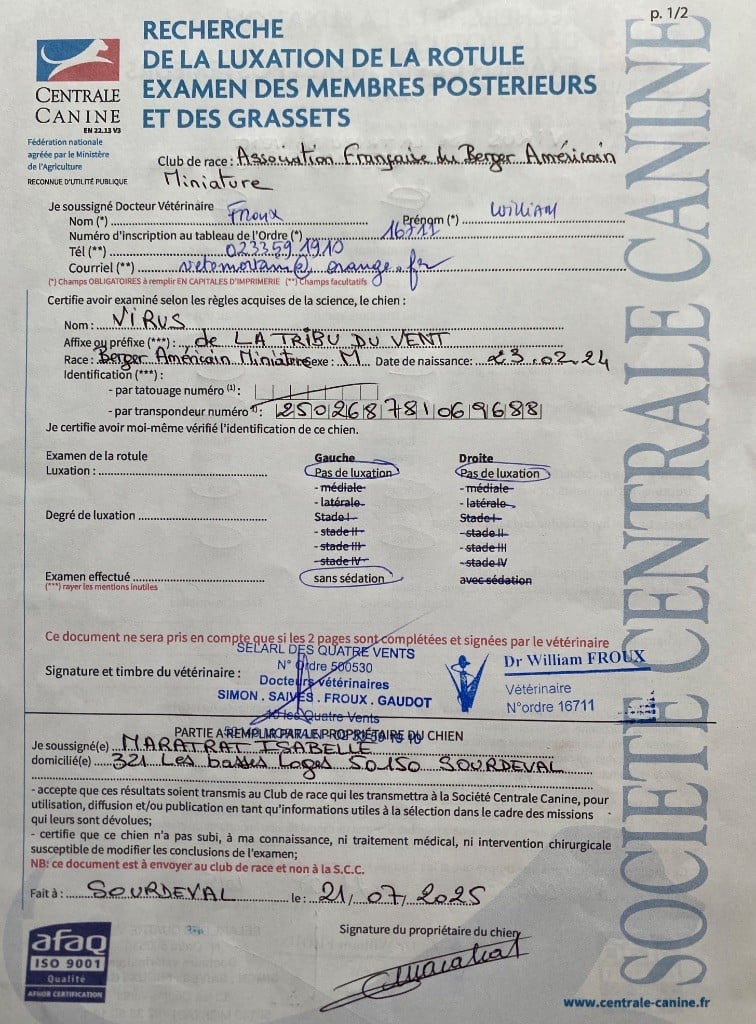 p. 1/2
RECHERCHE
DE LA LUXATION DE LA ROTULE
EXAMEN DES MEMBRES POSTERIEURS
ET DES GRASSETS
CENTRALE
CANINE
EN 22.13 V3
Fédération nationale
agréée par le Ministère
de l'Agriculture
RECONNUE D'UTILITÉ PUBLIQUE
Club de race : Association Française du Berger Américain
Miniature
Je soussigné Docteur Vétérinaire
Nom (*) FROUX Prénom (*) WILLIAM
Numéro d'inscription au tableau de l'Ordre (*) 16711
Tél (**) 0233591910
Courriel (**) vetomortain@orange.fr
(*) Champs OBLIGATOIRES à remplir EN CAPITALES D'IMPRIMERIE (**) Champs facultatifs
Certifie avoir examiné selon les règles acquises de la science, le chien :
Nom : VIRUS
Affixe ou préfixe (***) : de LA TRIBU DU VENT
Race : Berger Américain Miniature Sexe : M Date de naissance : 23.02.24
Identification (***) :
- par tatouage numéro (1) :
- par transpondeur numéro (1) : 250268781069688
Je certifie avoir moi-même vérifié l'identification de ce chien.
Examen de la rotule Gauche Droite
Luxation : Pas de luxation Pas de luxation
- médiale - médiale
- latérale - latérale
Degré de luxation Stade I Stade I
- stade II - stade II
- stade III - stade III
- stade IV - stade IV
Examen effectué sans sédation avec sédation
(***) rayer les mentions inutiles
Ce document ne sera pris en compte que si les 2 pages sont complétées et signées par le vétérinaire
SELARL DES QUATRE VENTS
N° Ordre 500530
Signature et timbre du vétérinaire :
Docteurs vétérinaires
SIMON . SAIVES . FROUX . GAUDOT
Quatre Vents
Dr William FROUX
Vétérinaire
N°ordre 16711
PARTIE A REMPLIR PAR LE PROPRIÉTAIRE DU CHIEN
Je soussigné(e) MARATRAT ISABELLE
domicilié(e) 321 Les basses Loges 50150 SOURDEVAL
- accepte que ces résultats soient transmis au Club de race qui les transmettra à la Société Centrale Canine, pour
utilisation, diffusion et/ou publication en tant qu'informations utiles à la sélection dans le cadre des missions
qui leurs sont dévolues;
- certifie que ce chien n'a pas subi, à ma connaissance, ni traitement médical, ni intervention chirurgicale
susceptible de modifier les conclusions de l'examen;
NB: ce document est à envoyer au club de race et non à la S.C.C.
Fait à : SOURDEVAL le : 21/07/2025
Signature du propriétaire du chien
afaq
ISO 9001
Qualité
AFNOR CERTIFICATION
www.centrale-canine.fr
SOCIETE CENTRALE CANINE